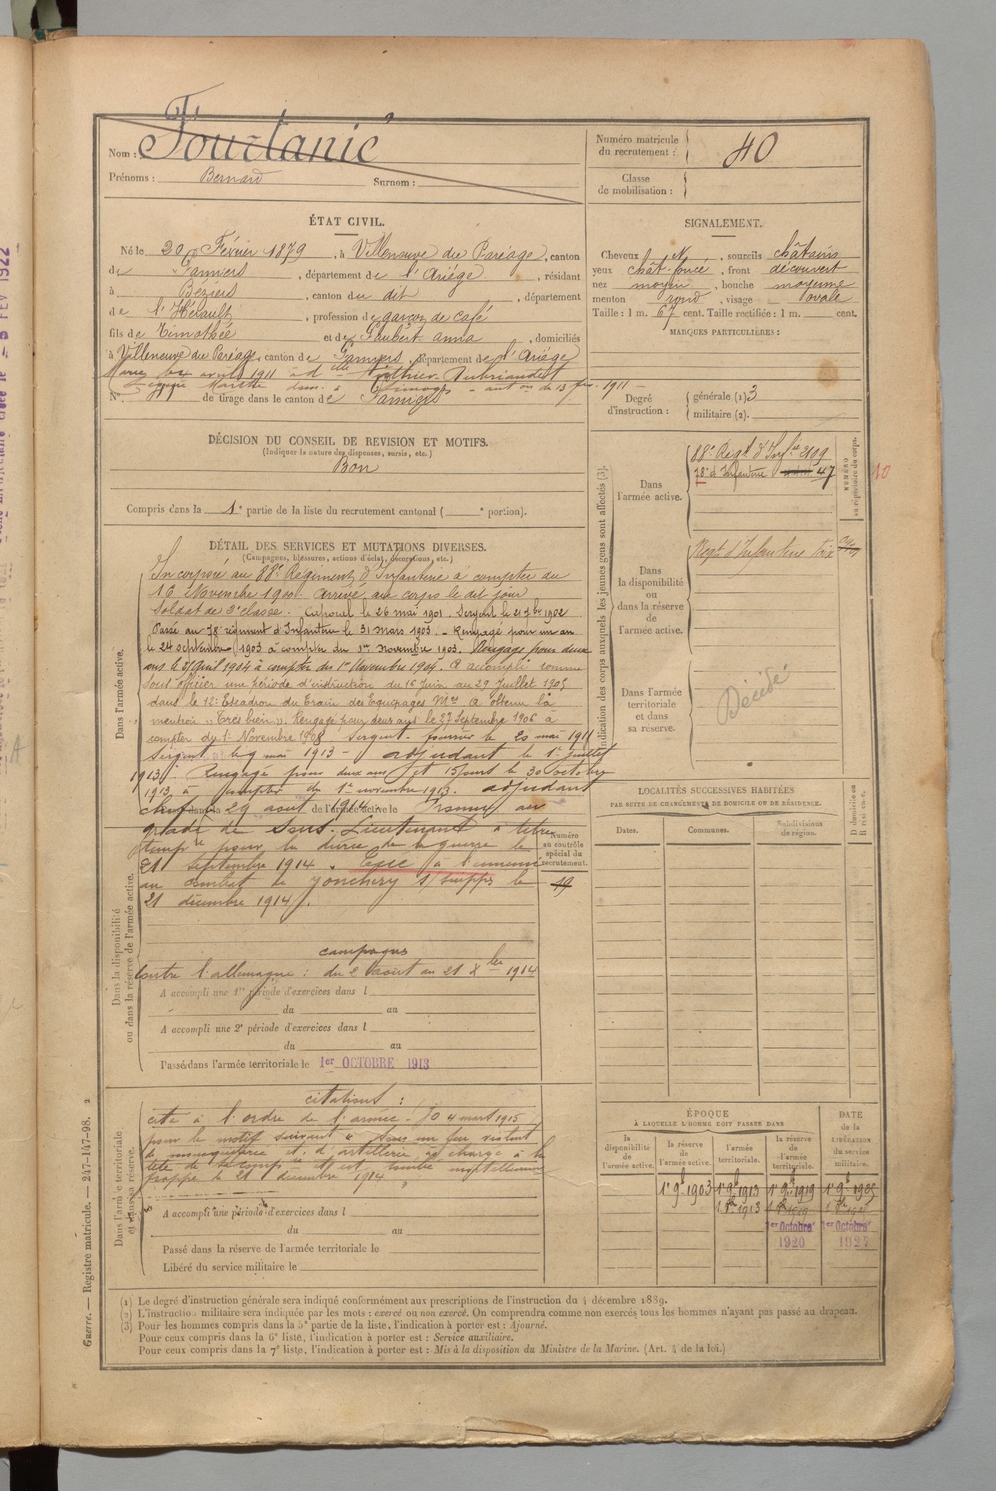 Nom : Fourtanié
Prénoms : Bernard Surnom :
Numéro matricule du recrutement : 40
Classe de mobilisation :
ÉTAT CIVIL.
Né le 20 Février 1879, à Villeneuve du Paréage, canton
de Pamiers, département de l'Ariège, résidant
à Béziers, canton du dit, département
de l'Hérault, profession de garçon de café
fils de Timothée et de Gaubert Anna, domiciliés
à Villeneuve du Paréage, canton de Pamiers, département de l'Ariège
Marié avril 1911 à dlle
Marette dom. à Limoges - aut on du 13 1911 -
N° de tirage dans le canton de Pamiers
SIGNALEMENT.
Cheveux N, sourcils châtains
yeux chât. foncé, front découvert
nez moyen, bouche moyenne
menton rond, visage ovale
Taille : 1 m. 67 cent. Taille rectifiée : 1 m. cent.
MARQUES PARTICULIÈRES :
Degré d'instruction : générale (1) 3
militaire (2).
DÉCISION DU CONSEIL DE REVISION ET MOTIFS.
(Indiquer la nature des dispenses, sursis, etc.)
Bon
Compris dans la 1e partie de la liste du recrutement cantonal ( e portion).
DÉTAIL DES SERVICES ET MUTATIONS DIVERSES.
(Campagnes, blessures, actions d'éclat, décorations, etc.)
Dans l'armée active.
Incorporé au 88e Régiment d'Infanterie à compter du
16 Novembre 1900. Arrivé au corps le dit jour
Soldat de 2e classe. Caporal le 26 mai 1901. Sergent le 21 7bre 1902
Passé au 78e régiment d'Infanterie le 31 mars 1903. - Rengagé pour un an
le 24 septembre 1903 à compter du 1er Novembre 1903. Rengagé pour deux
ans le Avril 1904 à compter du 1er Novembre 1904. A accompli comme
sous officier une période d'instruction du 16 Juin au 29 Juillet 1905
dans le 12e Escadron du Train des Equipages Mres A obtenu la
mention "Très bien". Rengagé pour deux ans le 27 Septembre 1906 à
compter du 1er Novembre 1908 Sergent-fourrier le 20 mai 1911
Sergent le 9 mai 1913 - adjudant le 1er juillet
1913. Rengagé pour deux ans et 15 jours le 30 octobre
1913 à compter du 1er novembre 1913. adjudant
chef le 29 août 1914. Promu au
dans la de l'armée active le
grade de Sous-Lieutenant à titre
tempre pour la durée de la guerre le
21 septembre 1914. Tué à l'ennemi
au combat de Jonchery s/Suippe le
21 décembre 1914.
Numéro au contrôle spécial du recrutement.
19
Dans la disponibilité ou dans la réserve de l'armée active.
campagnes
Contre l'allemagne : du 2 août au 21 Xbre 1914
A accompli une 1re période d'exercices dans l
du au
A accompli une 2e période d'exercices dans l
du au
Passé dans l'armée territoriale le 1er OCTOBRE 1913
Dans l'armée territoriale et dans sa réserve.
citations :
cité à l'ordre de l'armée. JO 4 mars 1915
pour le motif suivant " Sous un feu violent
de mousqueterie et d'artillerie, a chargé à la
tête de sa compie et est tombé mortellement
frappé le 21 décembre 1914 "
A accompli une période d'exercices dans l
du au
Passé dans la réserve de l'armée territoriale le
Libéré du service militaire le
Indication des corps auxquels les jeunes gens sont affectés (3).
NUMÉRO au répertoire du corps.
Dans l'armée active.
88e Regt d'Infie 2199
78e d'Infanterie 47
10
Dans la disponibilité ou dans la réserve de l'armée active.
Regt d'Infanterie
Dans l'armée territoriale et dans sa réserve.
Décédé
LOCALITÉS SUCCESSIVES HABITÉES
PAR SUITE DE CHANGEMENTS DE DOMICILE OU DE RÉSIDENCE.
Dates. Communes. Subdivisions de région. D domicile ou R résidence.
ÉPOQUE
À LAQUELLE L'HOMME DOIT PASSER DANS
la disponibilité de l'armée active. la réserve de l'armée active. l'armée territoriale. la réserve de l'armée territoriale.
DATE de la LIBÉRATION du service militaire.
1er 9b 1903 1er 9b 1913 1er 9b 1919 1er 9b 1925
1er Octobre 1920 1er Octobre 192
(1) Le degré d'instruction générale sera indiqué conformément aux prescriptions de l'instruction du 4 décembre 1889.
(2) L'instruction militaire sera indiquée par les mots : exercé ou non exercé. On comprendra comme non exercés tous les hommes n'ayant pas passé au drapeau.
(3) Pour les hommes compris dans la 5e partie de la liste, l'indication à porter est : Ajourné.
Pour ceux compris dans la 6e liste, l'indication à porter est : Service auxiliaire.
Pour ceux compris dans la 7e liste, l'indication à porter est : Mis à la disposition du Ministre de la Marine. (Art. 4 de la loi.)
Guerre. — Registre matricule. — 247-147-98. 2
FEV 1922